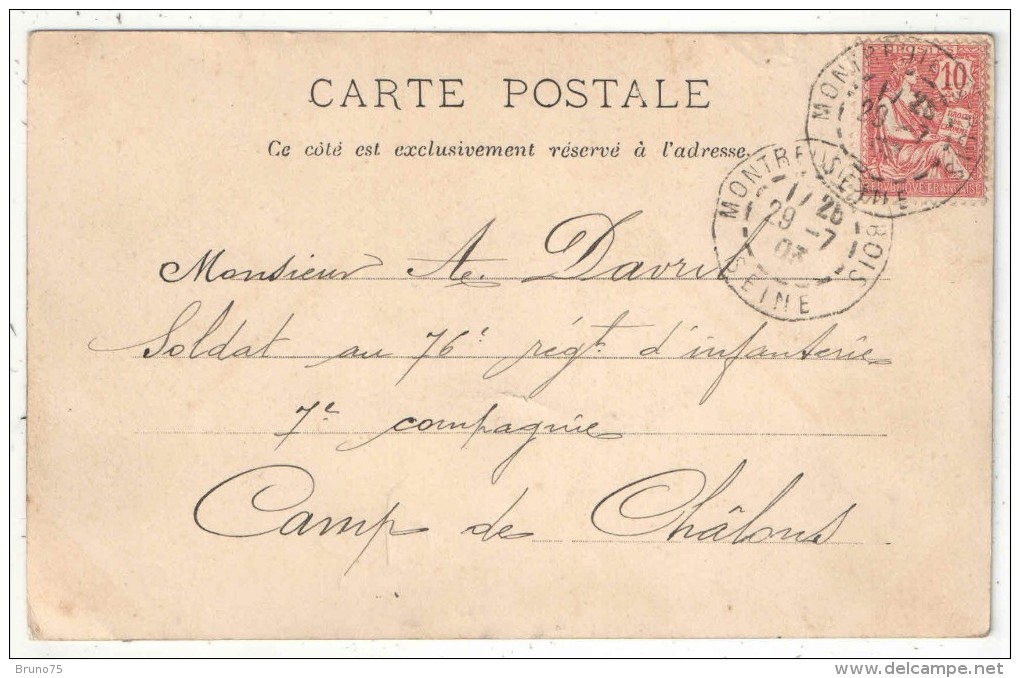 CARTE POSTALE
Ce côté est exclusivement réservé à l'adresse.
POSTES
10
DROITS DE L'HOMME
REPUBLIQUE FRANÇAISE
MONTREUIL BOIS
17 25
29 -7
03
SEINE
Monsieur A. Davril
Soldat au 76e régt. d'infanterie
7e compagnie
Camp de Châlons
Bruno75
www.delcampe.net